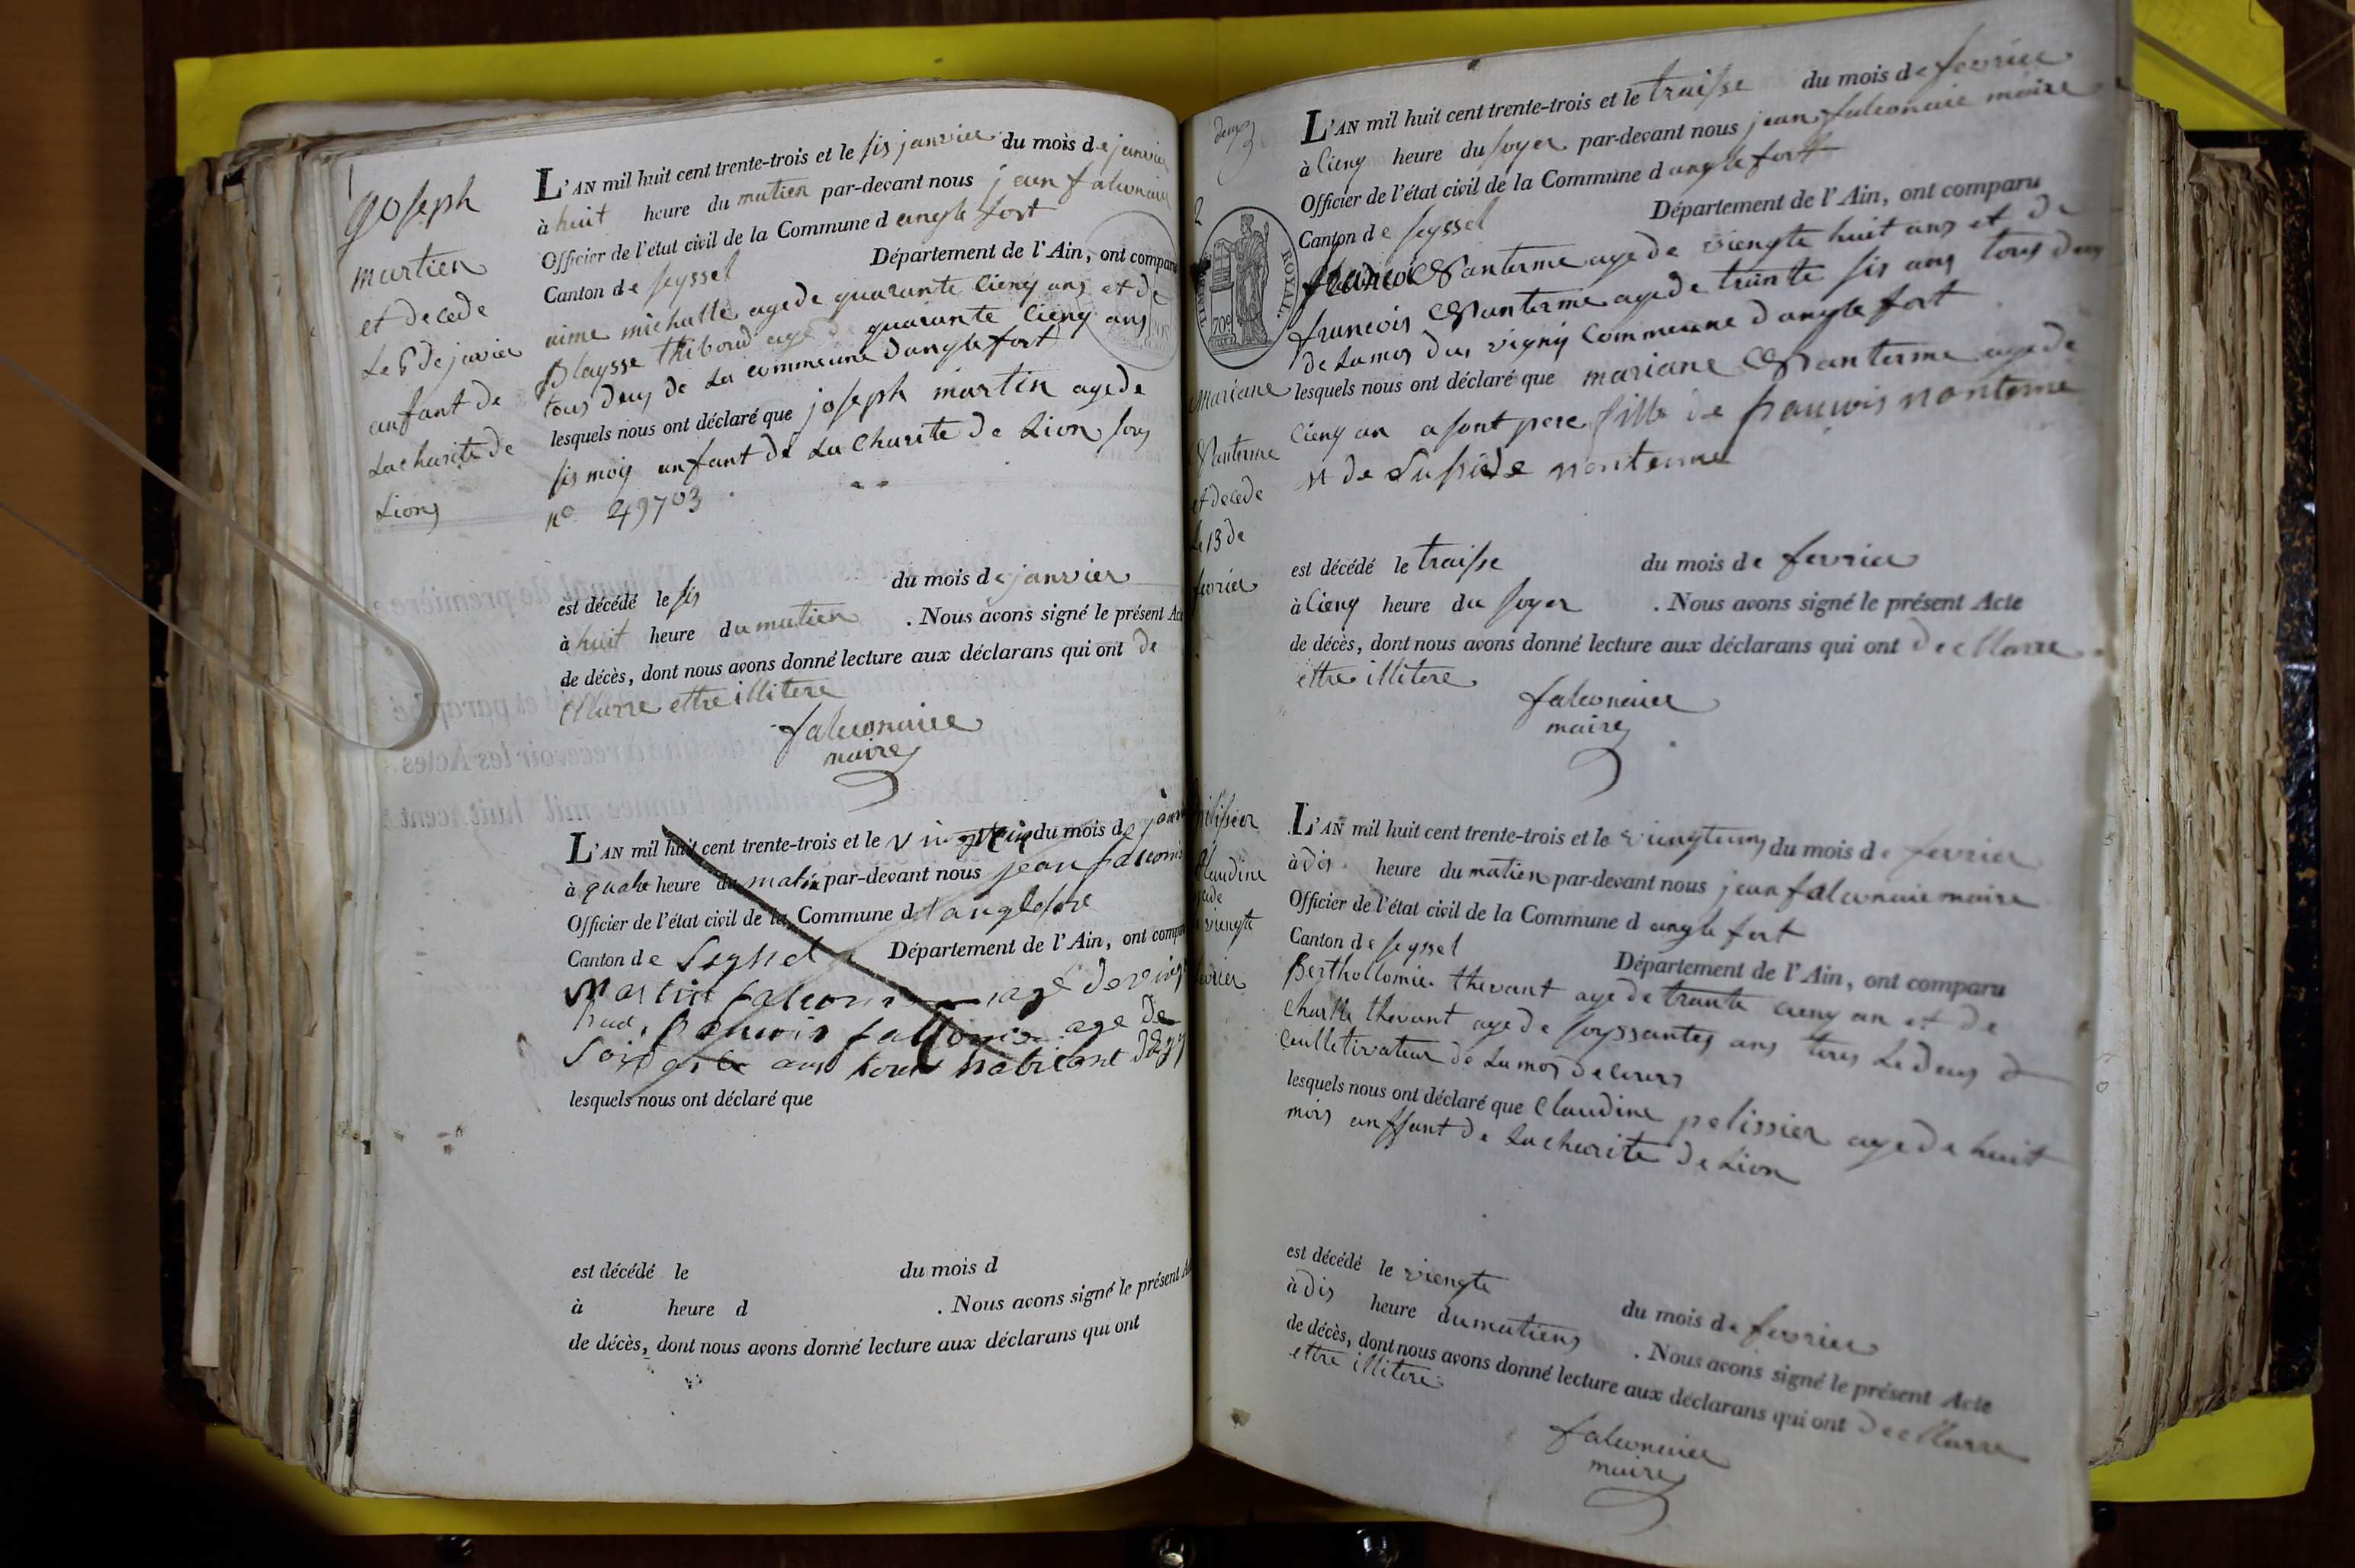 Joseph
martien
et decede
Le 6 de javier
anfant de
La charite de
Lions
L'AN mil huit cent trente-trois et le sis janvier du mois de janvier
à huit heure du matien par-devant nous jean falconnier
Officier de l'état civil de la Commune d angle fort
Canton de seyssel Département de l'Ain, ont comparu
aime michalle age de quarante cienq ans et de
Blaysse thiboud age de quarante cienq ans
tous deus de La commeune d angle fort
lesquels nous ont déclaré que joseph martin age de
sis mois anfant de La Charite de Lion sous
no 49703
est décédé le sis du mois de janvier
à huit heure du matien . Nous avons signé le présent Acte
de décès, dont nous avons donné lecture aux déclarans qui ont de
cllarre ettre illitere
falconnier
maire
L'AN mil huit cent trente-trois et le du mois de
à quatre heure du matin par-devant nous jean falconnier
Officier de l'état civil de la Commune d anglefort
Canton de Seyssel Département de l'Ain, ont comparu
Martin falconnier agé de
francois age de
ans
lesquels nous ont déclaré que
est décédé le du mois d
à heure d . Nous avons signé le présent
de décès, dont nous avons donné lecture aux déclarans qui ont
deux
2
TIMBRE ROYAL
70c
mariane
et decede
Le 13 de
fevrier
L'AN mil huit cent trente-trois et le traisse du mois de fevrier
à cienq heure du soyer par-devant nous jean falconnier maire
Officier de l'état civil de la Commune d angle fort
Canton de seyssel Département de l'Ain, ont comparu
francois Nanterme age de viengte huit ans et de
francois Nanterme age de trante sis ans tous deus
de Lamos das vigny Commeune d angle fort
lesquels nous ont déclaré que mariane Nanterme age de
cienq an a sont pere fille de francois nanterme
et de nanterme
est décédé le traisse du mois de fevrier
à cienq heure du soyer . Nous avons signé le présent Acte
de décès, dont nous avons donné lecture aux déclarans qui ont decllarre
ettre illitere
falconnier
maire
pelissier
Claudine
viengte
fevrier
L'AN mil huit cent trente-trois et le viengteun du mois de fevrier
à dis heure du matien par-devant nous jean falconnier maire
Officier de l'état civil de la Commune d angle fort
Canton de seyssel Département de l'Ain, ont comparu
Berthollomie thevant age de trante cienq an et de
Charlle thevant age de soyssantes ans tous Le deus
culletivateur de Lamos
lesquels nous ont déclaré que Claudine pelissier age de huit
mois anffant de La charite de Lion
est décédé le viengte du mois de fevrier
à dis heure du matiens . Nous avons signé le présent Acte
de décès, dont nous avons donné lecture aux déclarans qui ont decllarre
ettre illitere
falconnier
maire